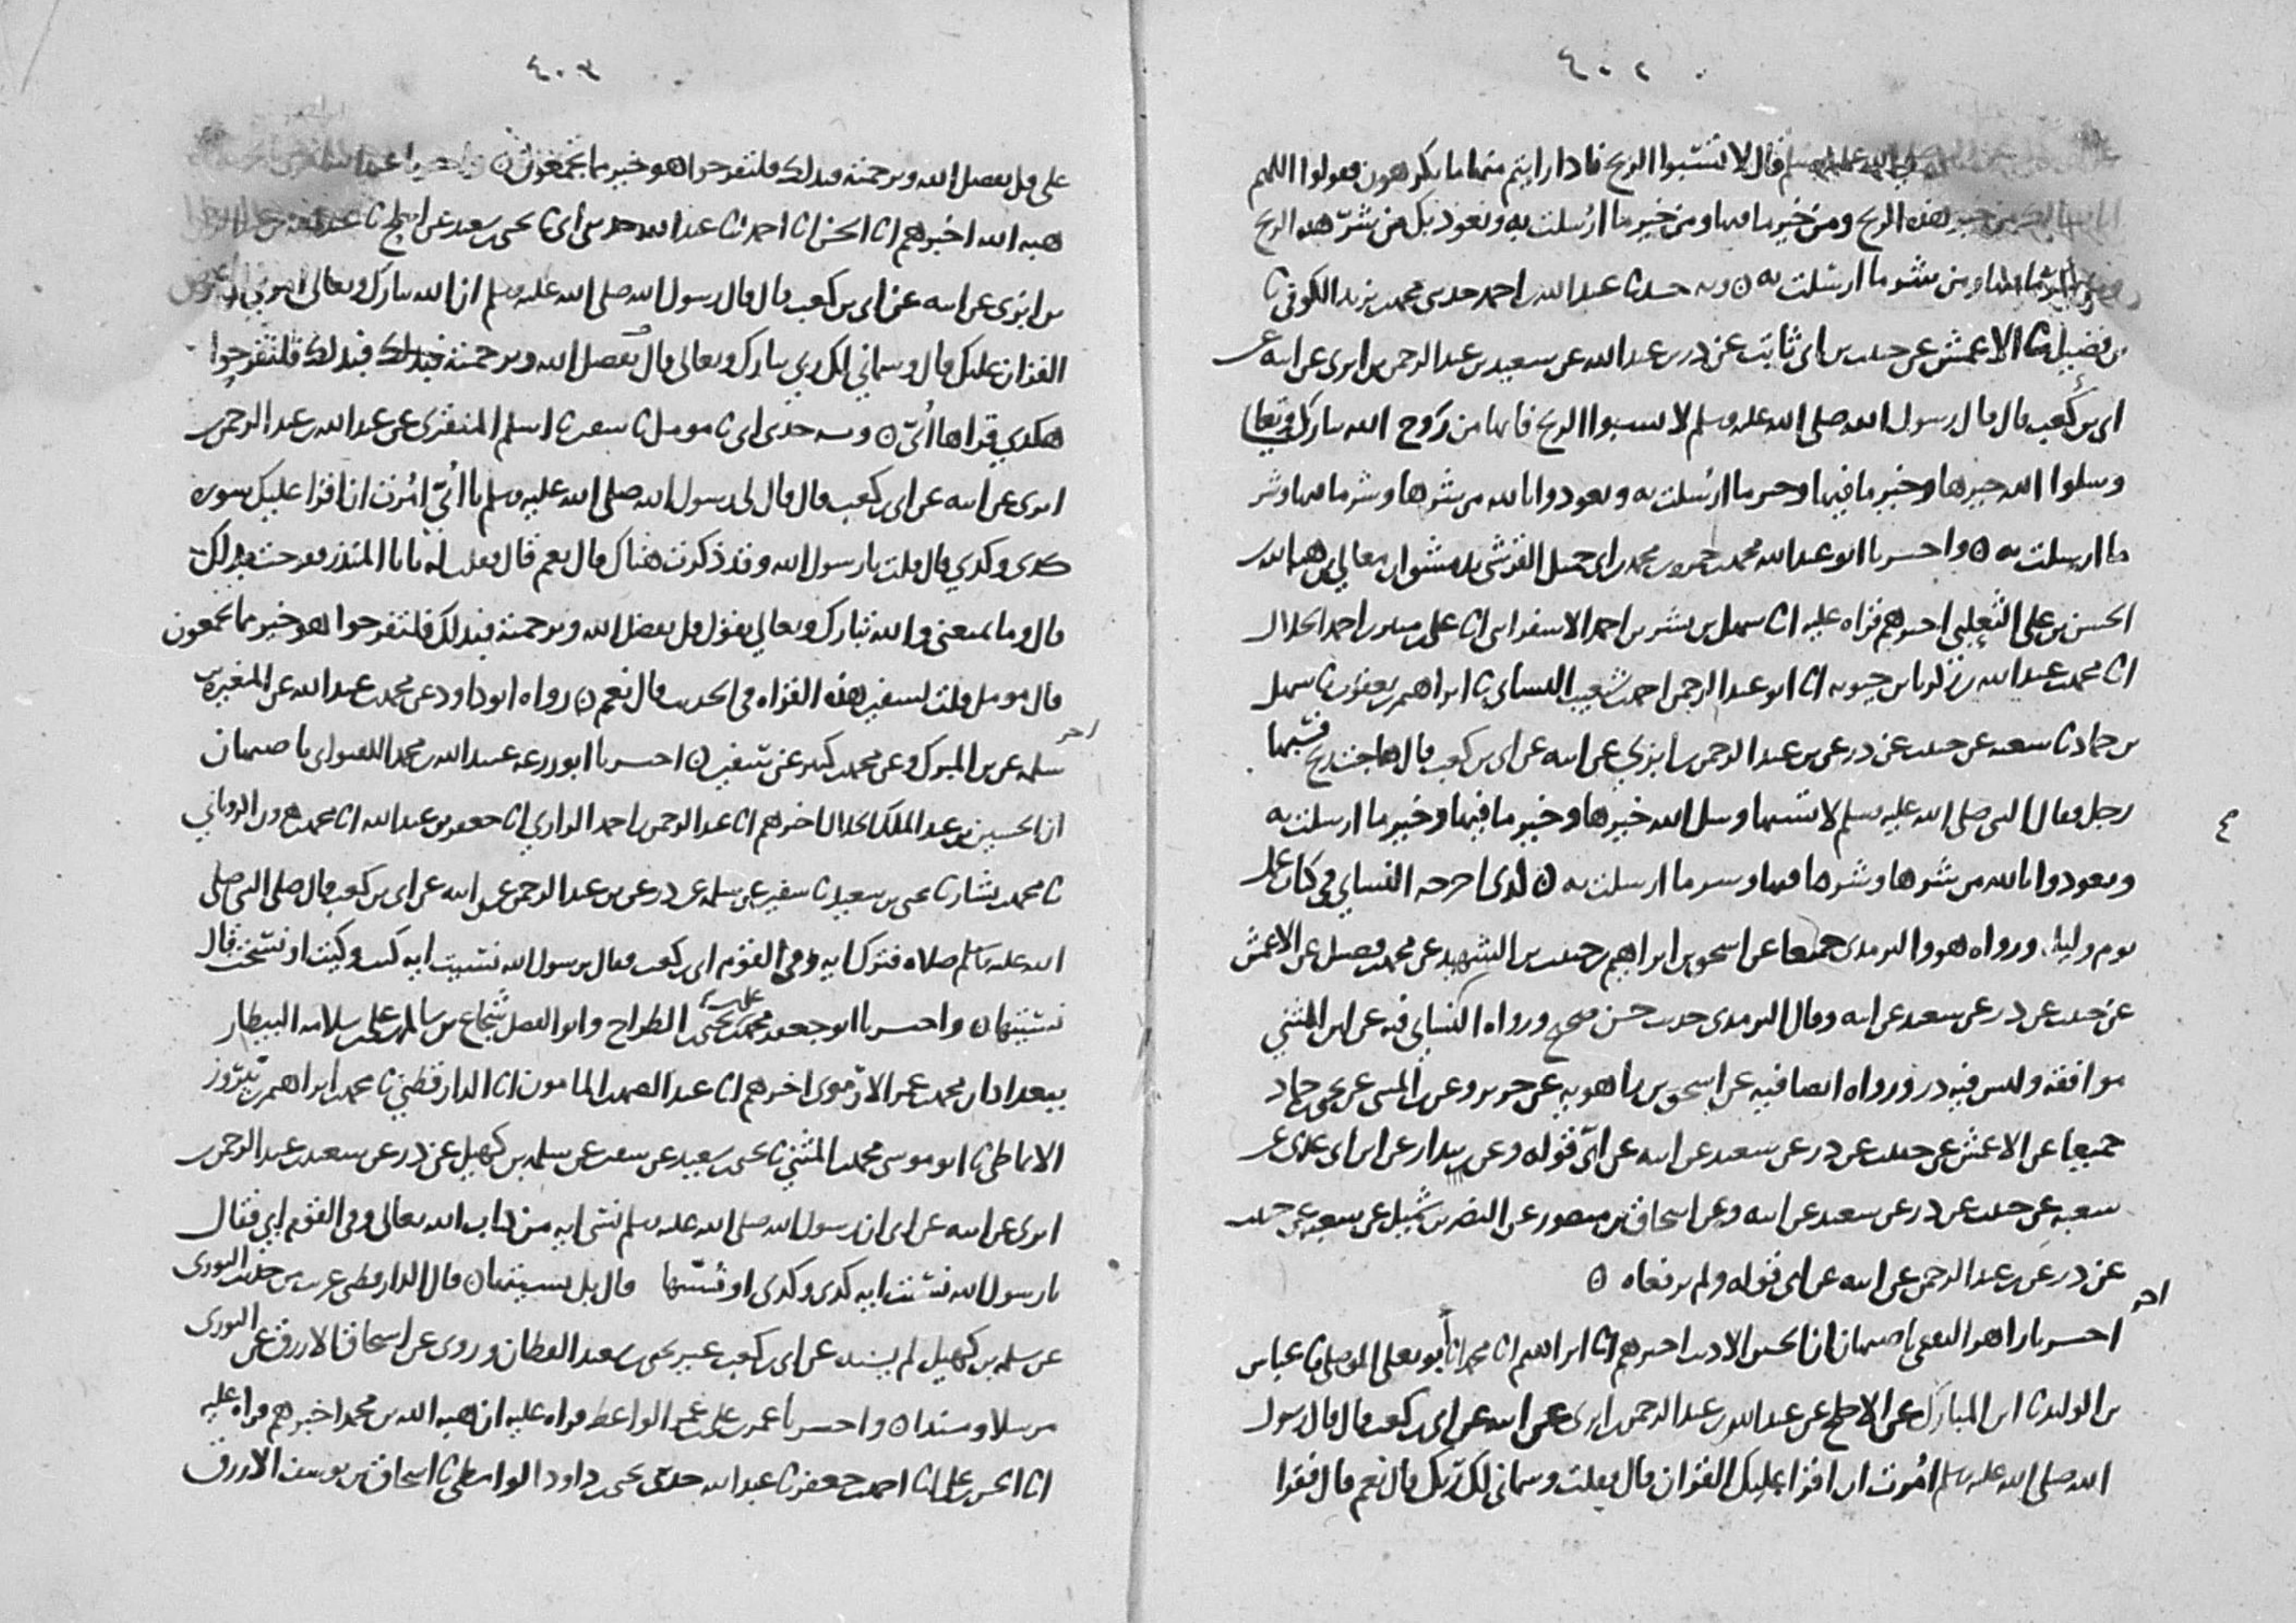 ٤٠٢
صلى الله عليه وسلم قال لا تسبوا الريح فاذا رايتم منها ما تكرهون فقولوا اللهم
هذه الريح ومن خير ما فيها ومن خير ما ارسلت به ونعوذ بك من شر هذه الريح
ومن شر ما ارسلت به ٥ وبه حدثنا عبد الله بن احمد حدثني محمد بن يزيد الكوفي ثنا
بن فضيل ثنا الاعمش عن حبيب بن ابي ثابت عن ذر بن عبد الله عن سعيد بن عبد الرحمن بن ابزى عن ابيه عن
ابي بن كعب قال قال رسول الله صلى الله عليه وسلم لا تسبوا الريح فانها من روح الله تبارك وتعالى
وسلوا الله خيرها وخير ما فيها وخير ما ارسلت به وتعوذوا بالله من شرها وشر ما فيها وشر
ما ارسلت به ٥ واخبرنا ابو عبد الله محمد بن حمزة بن محمد بن ابي جميل القرشي بدمشق ان معالي بن هبة الله بن
الحسن بن علي الثعلبي اخبرهم قراة عليه انا سهل بن بشر بن احمد الاسفرايني انا علي بن منير بن احمد الخلال
انا محمد بن عبد الله بن زكريا بن حيويه انا ابو عبد الرحمن احمد بن شعيب النسائي ثنا ابراهيم بن يعقوب ثنا سهل
بن حماد ثنا شعبة عن حبيب عن ذر عن بن عبد الرحمن بن ابزي عن ابيه عن ابي بن كعب قال هاجت ريح فسبها
رجل فقال النبي صلى الله عليه وسلم لا تسبها وسل الله خيرها وخير ما فيها وخير ما ارسلت به
وتعوذوا بالله من شرها وشر ما فيها وشر ما ارسلت به ٥ كذى اخرجه النسائي في كتاب عمل
يوم وليلة ورواه هو والترمذى جميعا عن اسحق بن ابراهيم بن حبيب بن الشهيد عن محمد بن فضيل عن الاعمش
عن حبيب عن ذر عن سعيد عن ابيه وقال الترمذى حديث حسن صحيح ورواه النسائي فيه عن ابن المثني
موافقة وليس فيه ذر ورواه ايضا فيه عن اسحق بن راهويه عن جرير وعن بن المثنى عن يحيى بن حماد
جميعا عن الاعمش عن حبيب عن ذر عن سعيد عن ابيه عن ابي قوله وعن بندار عن ابن ابي عدى عن
شعبة عن حبيب عن ذر عن سعيد عن ابيه وعن اسحاق بن منصور عن النضر بن شميل عن شعبة عن حبيب
عن ذر عن بن عبد الرحمن عن ابيه عن ابي قوله ولم يرفعاه ٥
اخر
اخبرنا زاهر الثقفي باصبهان ان الحسين الاديب اخبرهم انا ابراهيم انا محمد انا ابو يعلى الموصلي ثنا عباس
بن الوليد ثنا ابن المبارك عن الاجلح عن عبد الله بن عبد الرحمن بن ابزى عن ابيه عن ابي بن كعب قال قال رسول
الله صلى الله عليه وسلم امرت ان اقرا عليك القران قال فقلت وسماني لك ربك قال نعم قال فقرا
٤٠٣
علي قل بفضل الله وبرحمته فبذلك فلتفرحوا هو خير مما تجمعون ٥
هبة الله اخبرهم انا الحسن انا احمد ثنا عبد الله حدثني ابي ثنا يحيى بن سعيد عن اجلح ثنا عبد الله
بن ابزى عن ابيه عن ابي بن كعب قال قال رسول الله صلى الله عليه وسلم ان الله تبارك وتعالى امرني ان
القران عليك قال وسماني لك ربي تبارك وتعالى قال بفضل الله وبرحمته فبذلك فبذلك فلتفرحوا
هكذي قراها ابي ٥ وبه حدثني ابي ثنا مومل ثنا سفين ثنا اسلم المنقري عن عبد الله بن عبد الرحمن بن
ابزى عن ابيه عن ابي بن كعب قال قال لي رسول الله صلى الله عليه وسلم يا ابي امرت ان اقرا عليك سورة
كذى وكذي قال قلت يا رسول الله وقد ذكرت هناك قال نعم قال فقلت له يا ابا المنذر ففرحت بذلك
قال وما يمنعني والله تبارك وتعالي يقول قل بفضل الله وبرحمته فبذلك فلتفرحوا هو خير مما تجمعون
قال مومل قلت لسفين هذه القراة في الحديث قال نعم ٥ رواه ابو داود عن محمد بن عبد الله عن المغيرة بن
سلمة عن بن المبرك وعن محمد بن كثير عن سفين ٥ اخبرنا ابو زرعة عبيد الله بن محمد اللفتواني باصبهان
اخر
ان الحسين بن عبد الملك الخلال اخبرهم انا عبد الرحمن بن احمد الرازي انا جعفر بن عبد الله انا محمد بن هرون الروياني
ثنا محمد بن بشار ثنا يحيى بن سعيد ثنا سفين عن سلمة عن ذر عن بن عبد الرحمن عن ابيه عن ابي بن كعب قال صلى النبي صلى
الله عليه وسلم صلاة فترك اية وفي القوم ابي بن كعب فقال يرسول الله نسيت اية كيت وكيت او نسخت قال
نسيتها ٥ واخبرنا ابو جعفر محمد بن يحيى الطراح وابو الفضل شجاع بن سالم بن علي بن سلامة البيطار
ببغداد ان محمد بن عمر الارموى اخبرهم انا عبد الصمد بن المامون انا الدارقطني ثنا محمد بن ابراهيم بن نيروز
الانماطي ثنا ابو موسى محمد بن المثني ثنا يحيى بن سعيد عن سفين عن سلمة بن كهيل عن ذر عن سعيد بن عبد الرحمن بن
ابزى عن ابيه عن ابي ان رسول الله صلى الله عليه وسلم نسي اية من كتاب الله تعالى وفي القوم ابي فقال
يا رسول الله نسيت اية كذى وكذى او نسيتها قال بل نسيتها ٥ قال الدارقطني غريب من حديث الثورى
عن سلمة بن كهيل لم يسنده عن ابي بن كعب غير يحيى بن سعيد القطان وروى عن اسحاق الازرق عن الثورى
مرسلا ومسندا ٥ واخبرنا عمر بن علي بن عمر الواعظ قراة عليه ان هبة الله بن محمد اخبرهم قراة عليه
انا الحسن بن علي انا احمد بن جعفر ثنا عبد الله حدثني يحيى بن داود الواسطي ثنا اسحاق بن يوسف الازرق